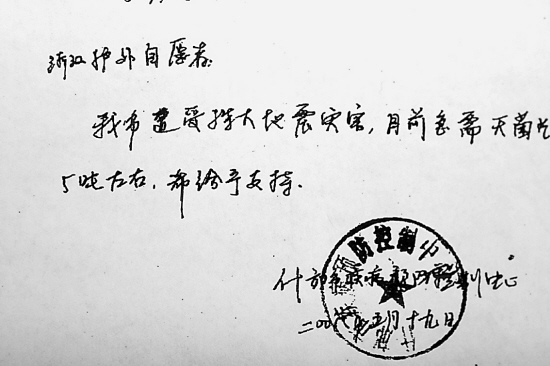 浙江户外自愿者
我市遭受特大地震灾害,目前急需灭菌
5吨左右,希给予支持.
防控制中
什邡市疾病预防控制中心
二00八年五月十九日